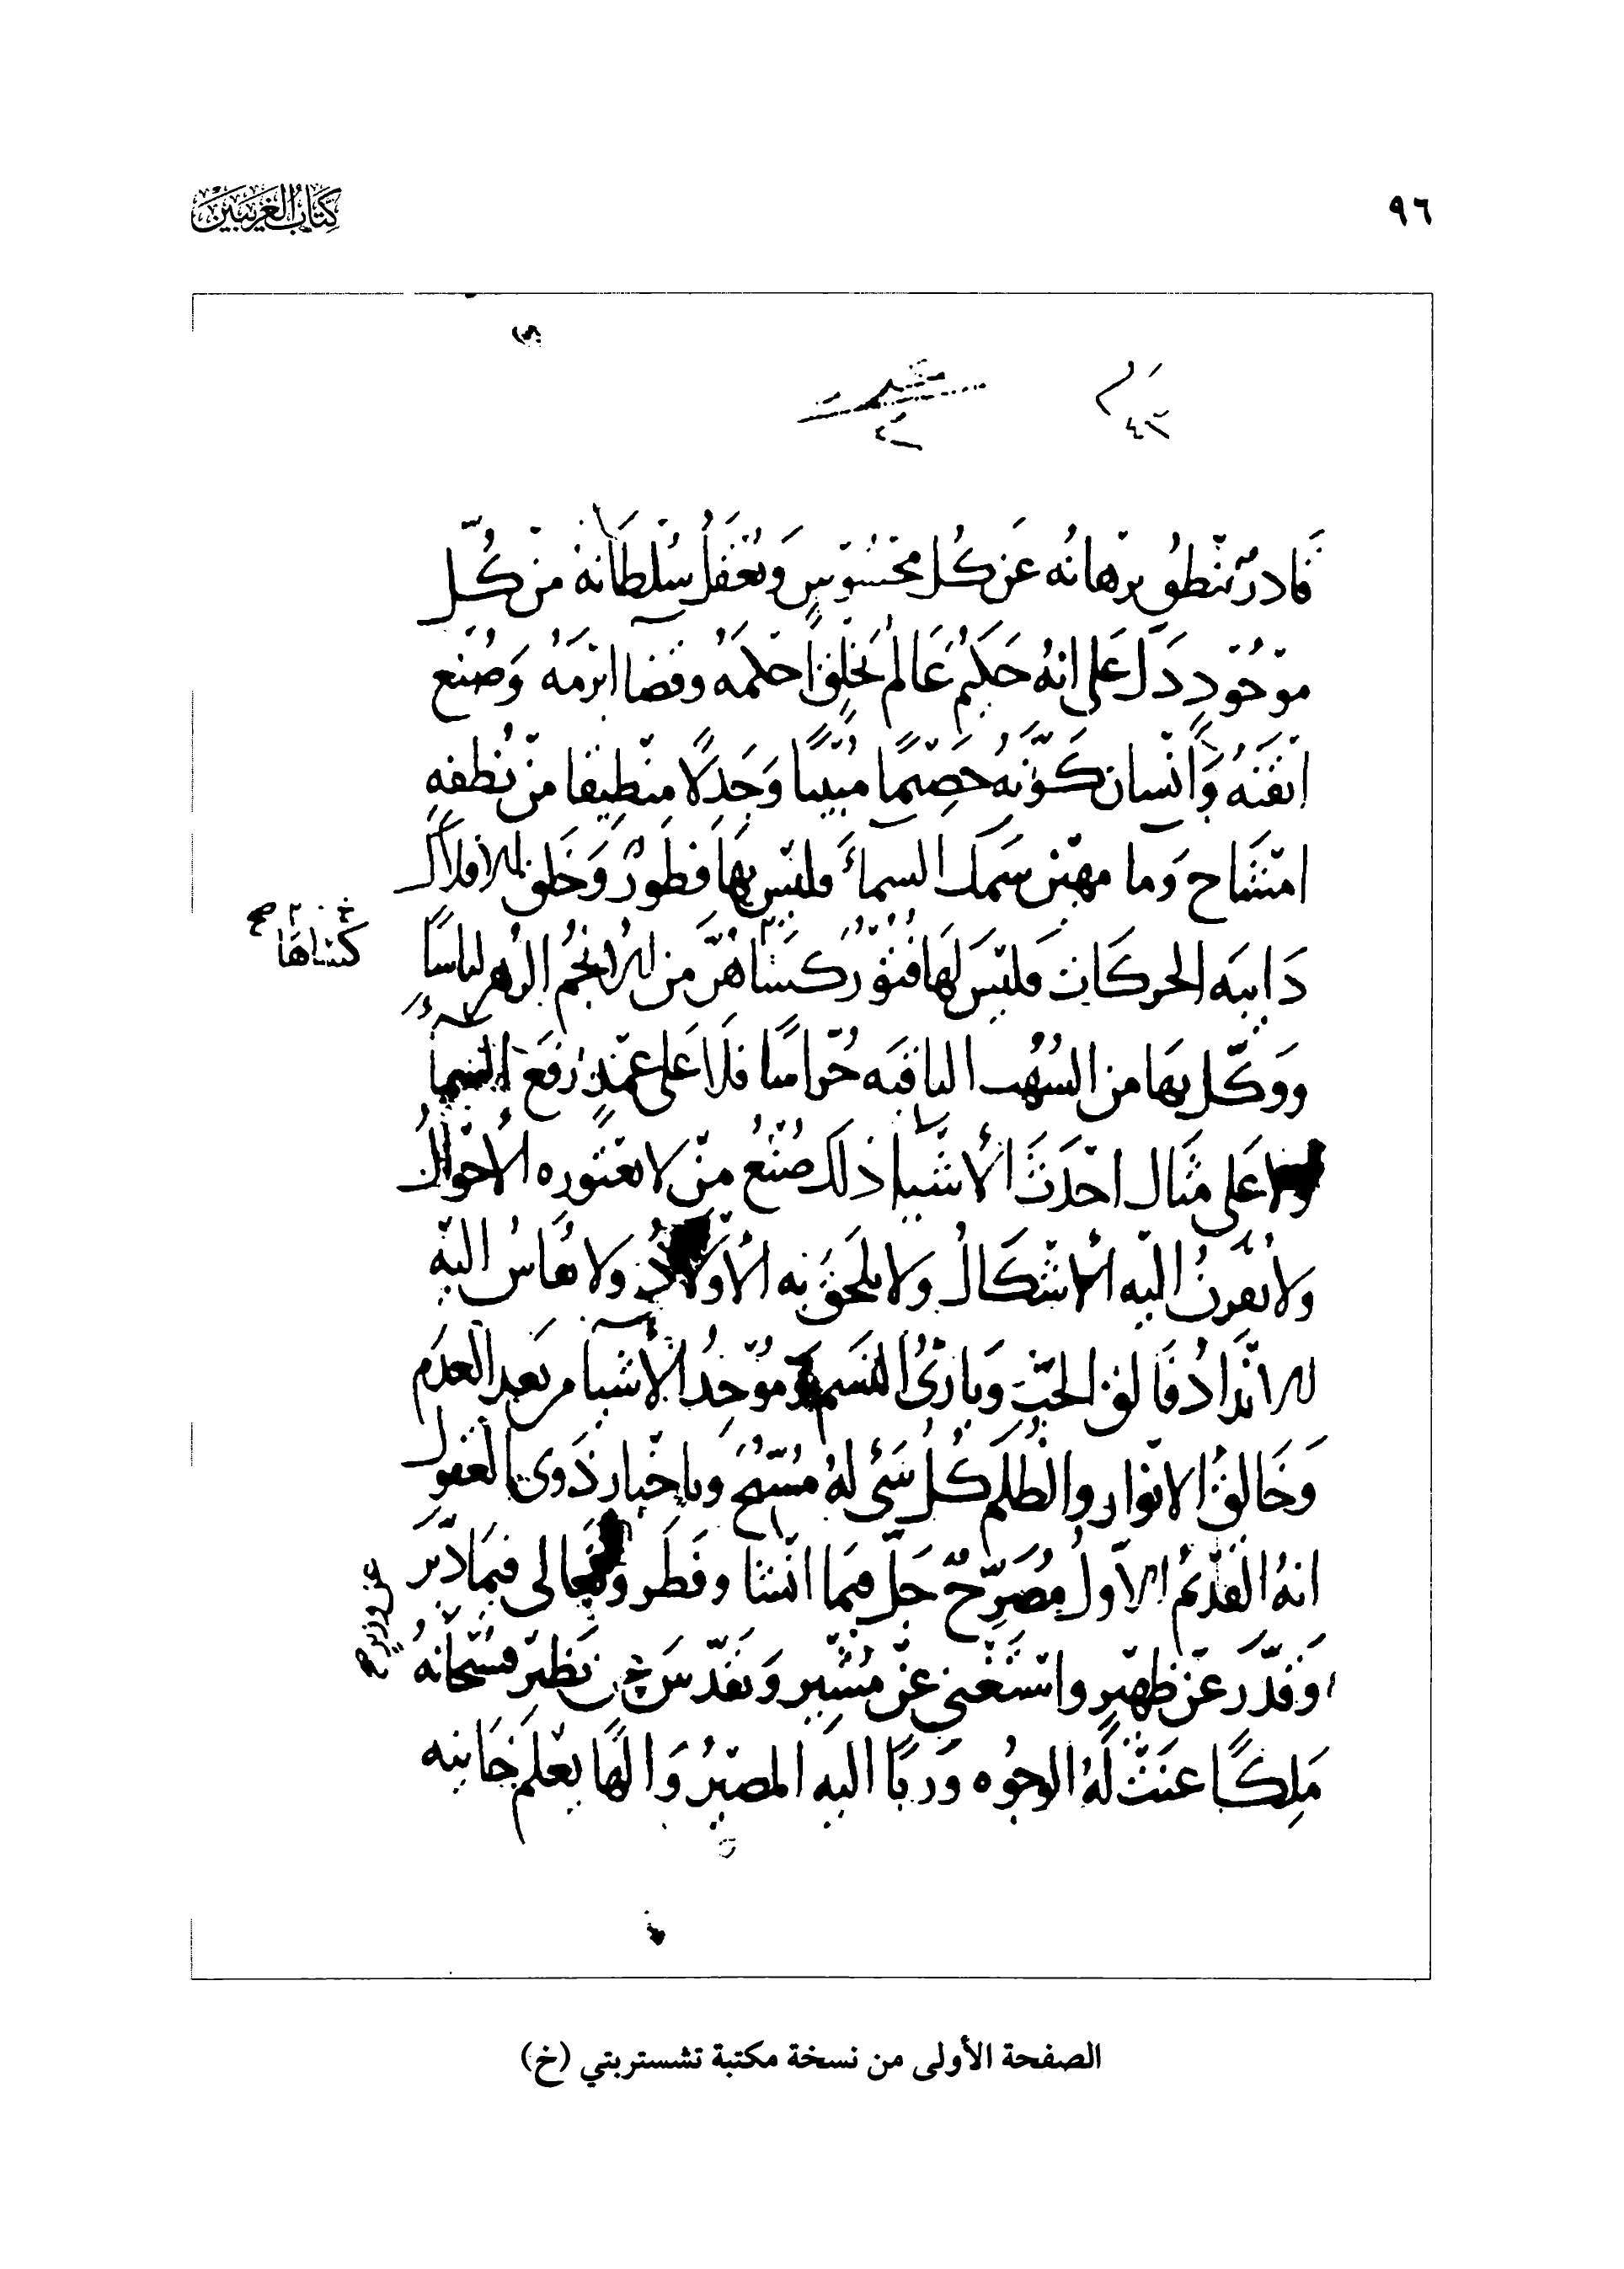 ٩٦
كِتَابُ الغَرِيبَيْن
قَادرٌ ينْطقُ برْهانُه عَن كُل محْسُوسٍ ويُعْقَلُ سُلْطانهُ منْ كُلِّ
موْجُوْدٍ دَلَّ عَلى انهُ حَكيمٌ عَالمٌ بخَلقٍ احْكمَهُ وقضاءٍ ابْرمَهُ وَصُنْع
اتقنَهُ وَانْسان كَوَّنهُ خَصِيْمًا مُبيْنًا وَجَدِلًا منْطِيقا منْ نُطفهٍ
امْشَاج وَما مهيْن سَمَك السماءَ فليْسَ بهَا فطُورٌ وَخَلق الافلاكَ
دَايبَه الحركات فليْسَ لهَا فُتُوْرٌ كسَاهُنَّ من الانْجُم الزُهر لباسًا
كسَاهَا صح
ووكَّل بهَا من الشُهُب الثاقبَه حُرَّاسًا فلَا عَلى عمَدٍ رَفعَ السماءَ
ولا عَلى مثال احْدَثَ الأشْياءَ ذلك صُنْعُ منْ لا تعْتوره الأحْوَالُ
ولا تُضرَبُ اليْه الأشْكالُ ولا يلحَقُ به الأولَادُ ولا يُقاسُ اليْه
الانْدادُ فَالق الحَبّ وَبارئُ النسَم وموْجدُ الأشياء من بَعد العدَم
وَخَالقُ الانْوار والظُلَم كُلُ شَيءٍ لهُ مُسَبّحٌ وباخْبار ذَوي العقول
انهُ القدْيمُ الأوَّلُ مُصَرِّحٌ جَلَّ فيمَا انْشا وفَطَر وتَعَالى فيمَا دَبَّرَ
عن وزير صح
وَقدَّرَ عَنْ ظَهيْرٍ واسْتَغْنى عَنْ مُشيْرٍ وَتقَدّسَ عَن نَظيْرٍ فسُبْحَانهُ
مَلِكًا عنَتْ لَهُ الوجُوه وَرَبًّا اليْه المصيْرُ وَالهًا يعْلَم خَاينه
الصفحة الأولى من نسخة مكتبة تشستربتي (خ)